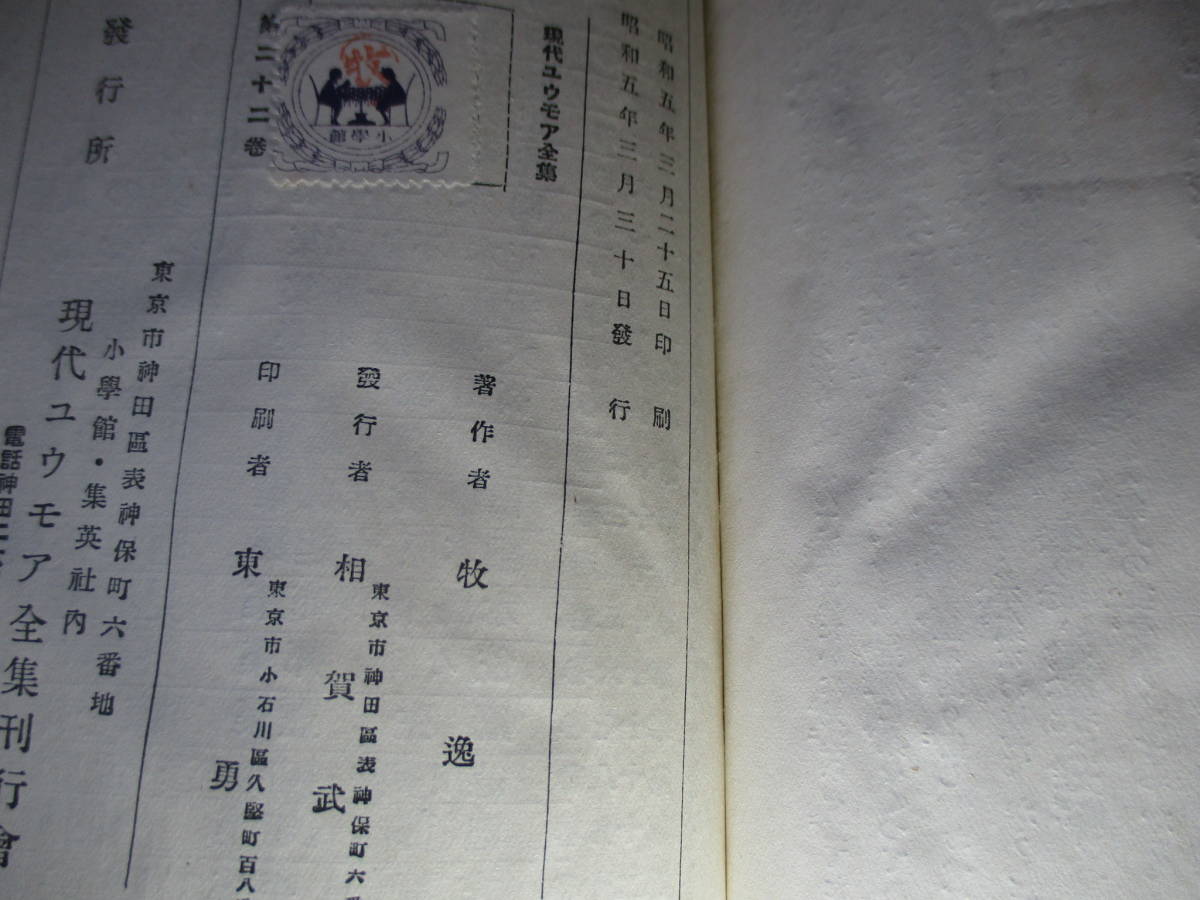 昭和五年三月二十五日印刷
昭和五年三月三十日發行
現代ユウモア全集
第二十二卷
小學館
著作者 牧逸
發行者 相賀武
東京市神田區表神保町六
印刷者 東勇
東京市小石川區久堅町百八
發行所
東京市神田區表神保町六番地
小學館・集英社內
現代ユウモア全集刊行會
電話神田二